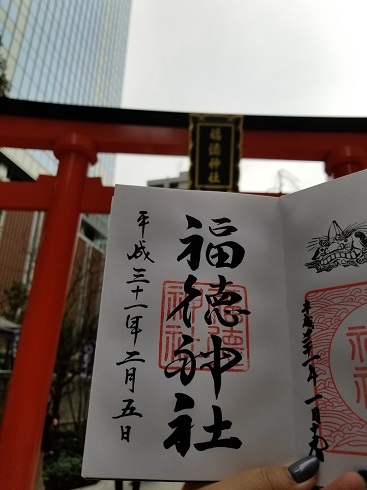 福徳神社
福徳神社
平成三十一年二月五日
福徳神社
平成三十一年一月